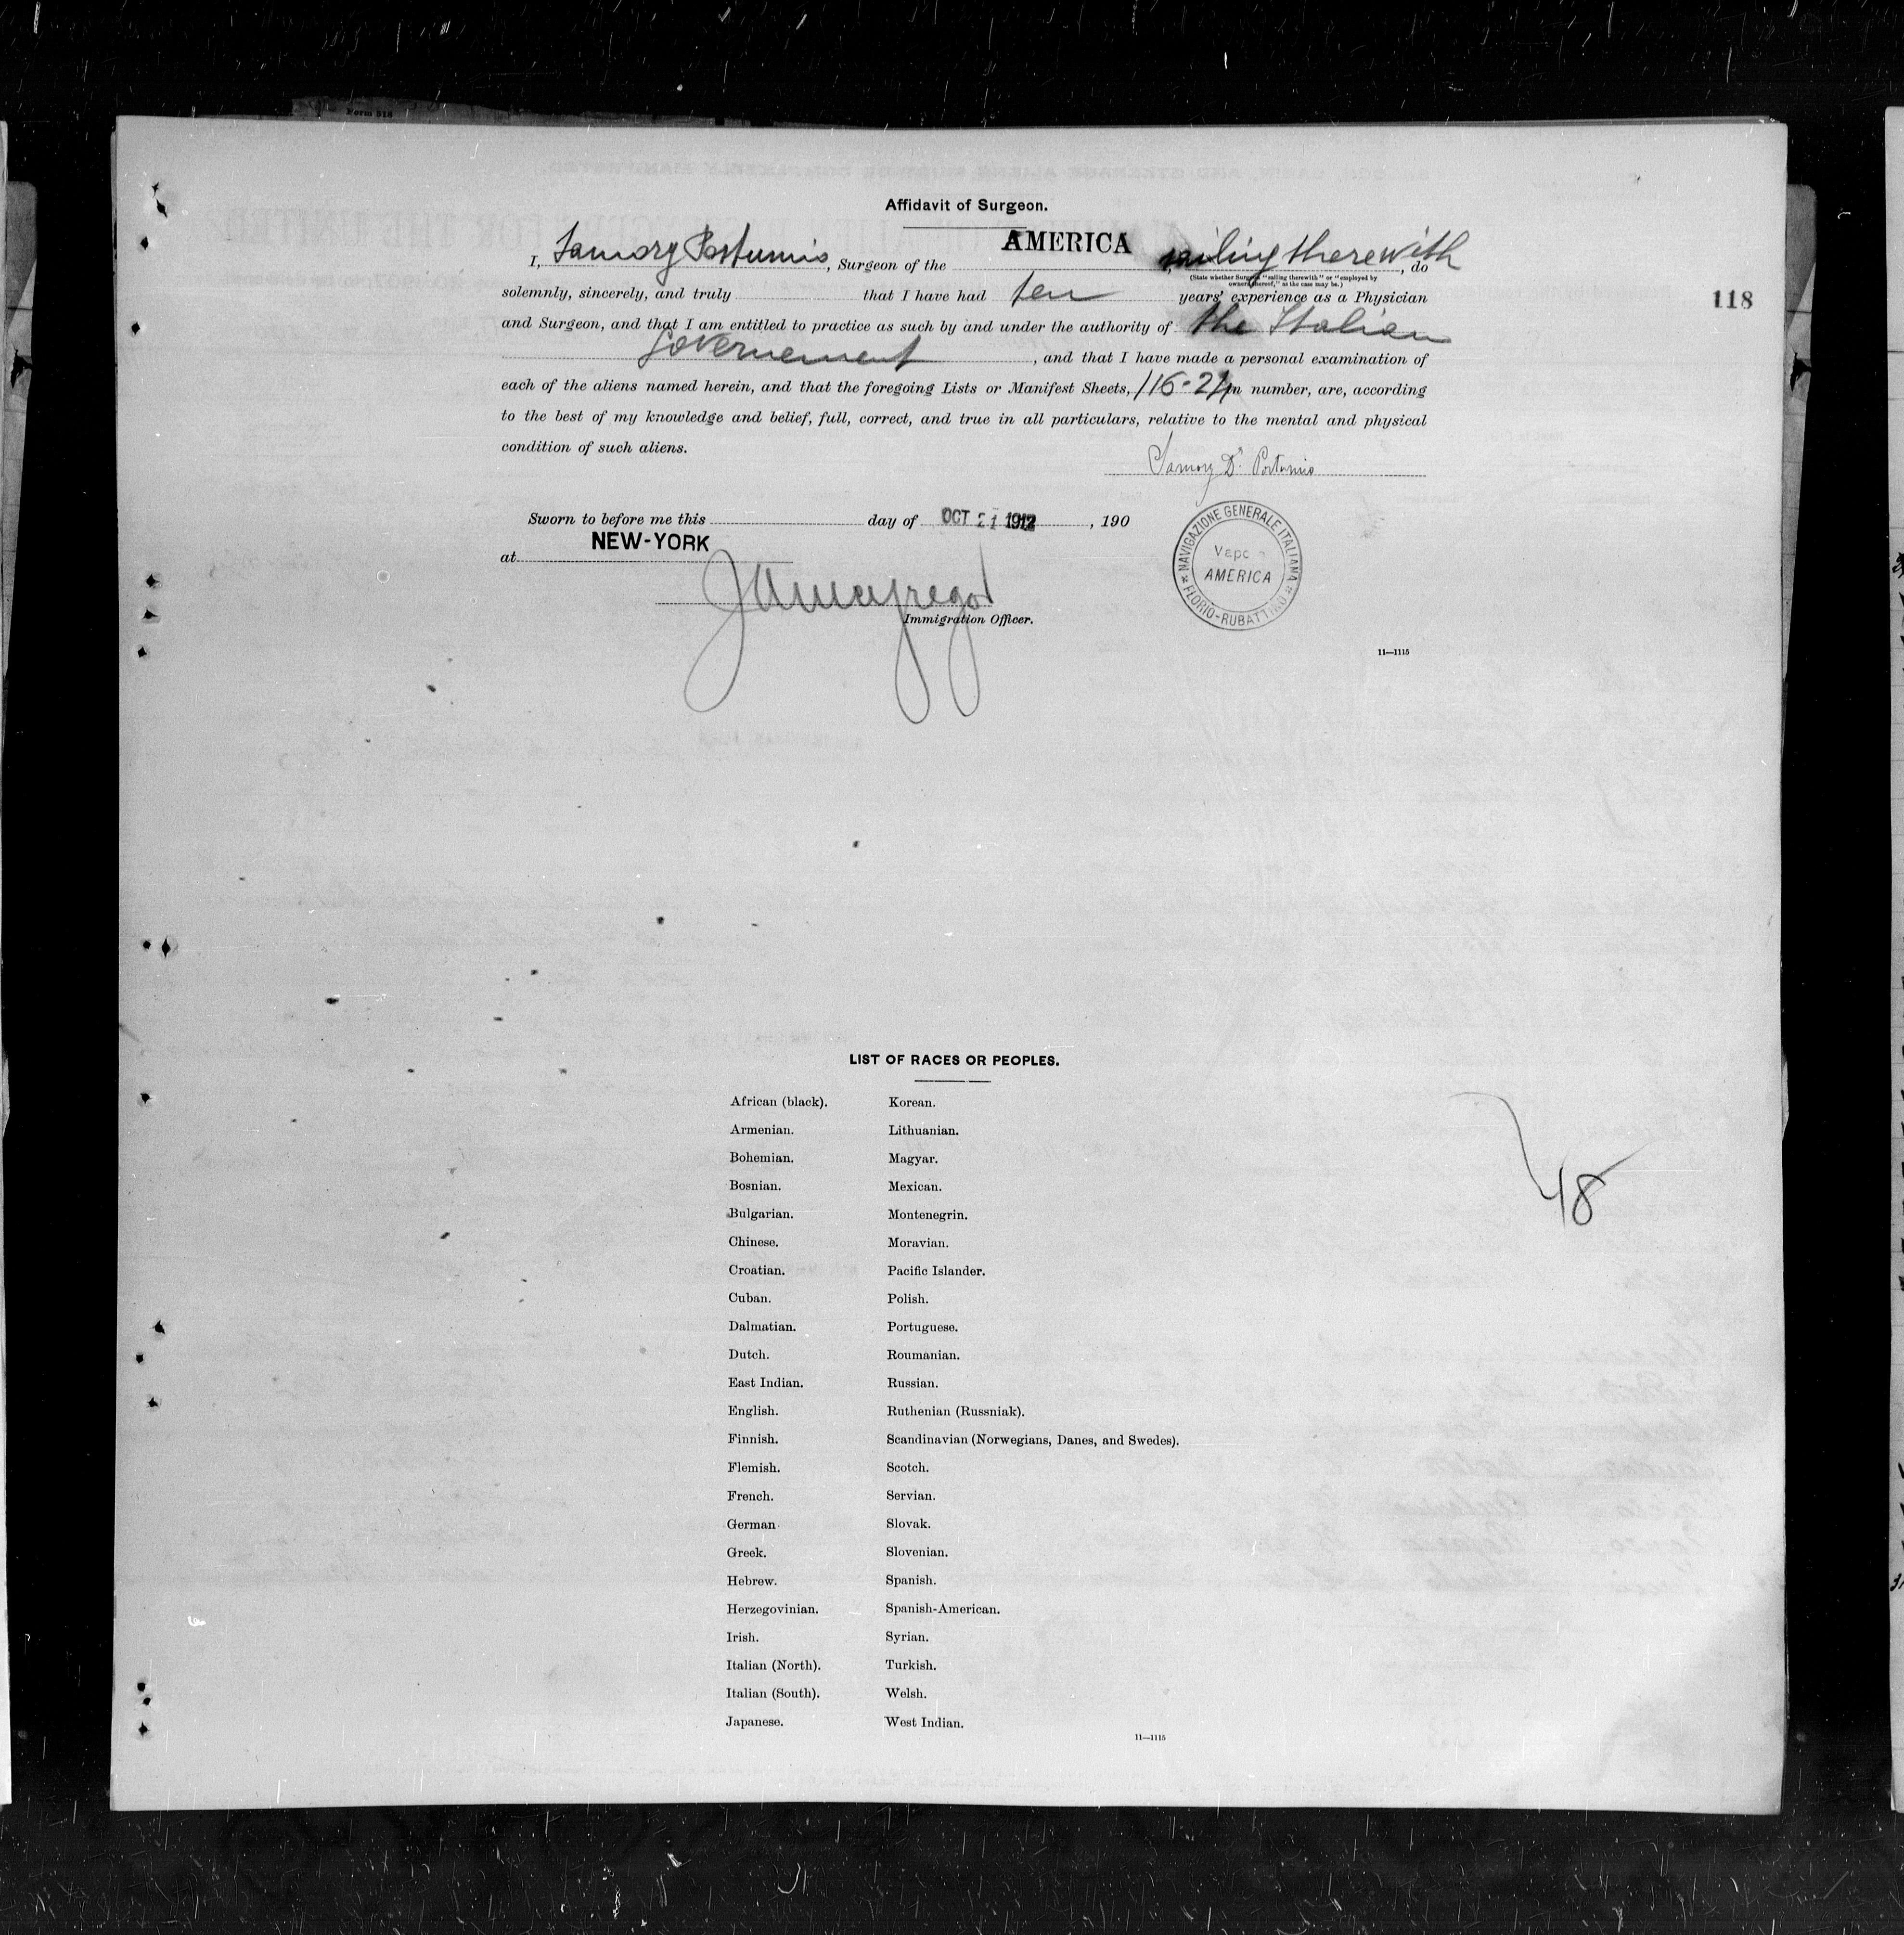 Form 516
Affidavit of Surgeon.
I, Samory Postumio, Surgeon of the AMERICA, sailing therewith, do
(State whether Surgeon "sailing therewith" or "employed by
owners thereof," as the case may be.)
solemnly, sincerely, and truly that I have had ten years' experience as a Physician
118
and Surgeon, and that I am entitled to practice as such by and under the authority of the Italian
Governement, and that I have made a personal examination of
each of the aliens named herein, and that the foregoing Lists or Manifest Sheets, 116-21 in number, are, according
to the best of my knowledge and belief, full, correct, and true in all particulars, relative to the mental and physical
condition of such aliens.
Samory Dr. Postumio
Sworn to before me this day of OCT 21 1912, 190
at NEW-YORK
Immigration Officer.
NAVIGAZIONE GENERALE ITALIANA
AMERICA
FLORIO-RUBATTINO
11—1115
LIST OF RACES OR PEOPLES.
African (black). Korean.
Armenian. Lithuanian.
Bohemian. Magyar.
Bosnian. Mexican.
Bulgarian. Montenegrin.
Chinese. Moravian.
Croatian. Pacific Islander.
Cuban. Polish.
Dalmatian. Portuguese.
Dutch. Roumanian.
East Indian. Russian.
English. Ruthenian (Russniak).
Finnish. Scandinavian (Norwegians, Danes, and Swedes).
Flemish. Scotch.
French. Servian.
German Slovak.
Greek. Slovenian.
Hebrew. Spanish.
Herzegovinian. Spanish-American.
Irish. Syrian.
Italian (North). Turkish.
Italian (South). Welsh.
Japanese. West Indian.
11—1115
48